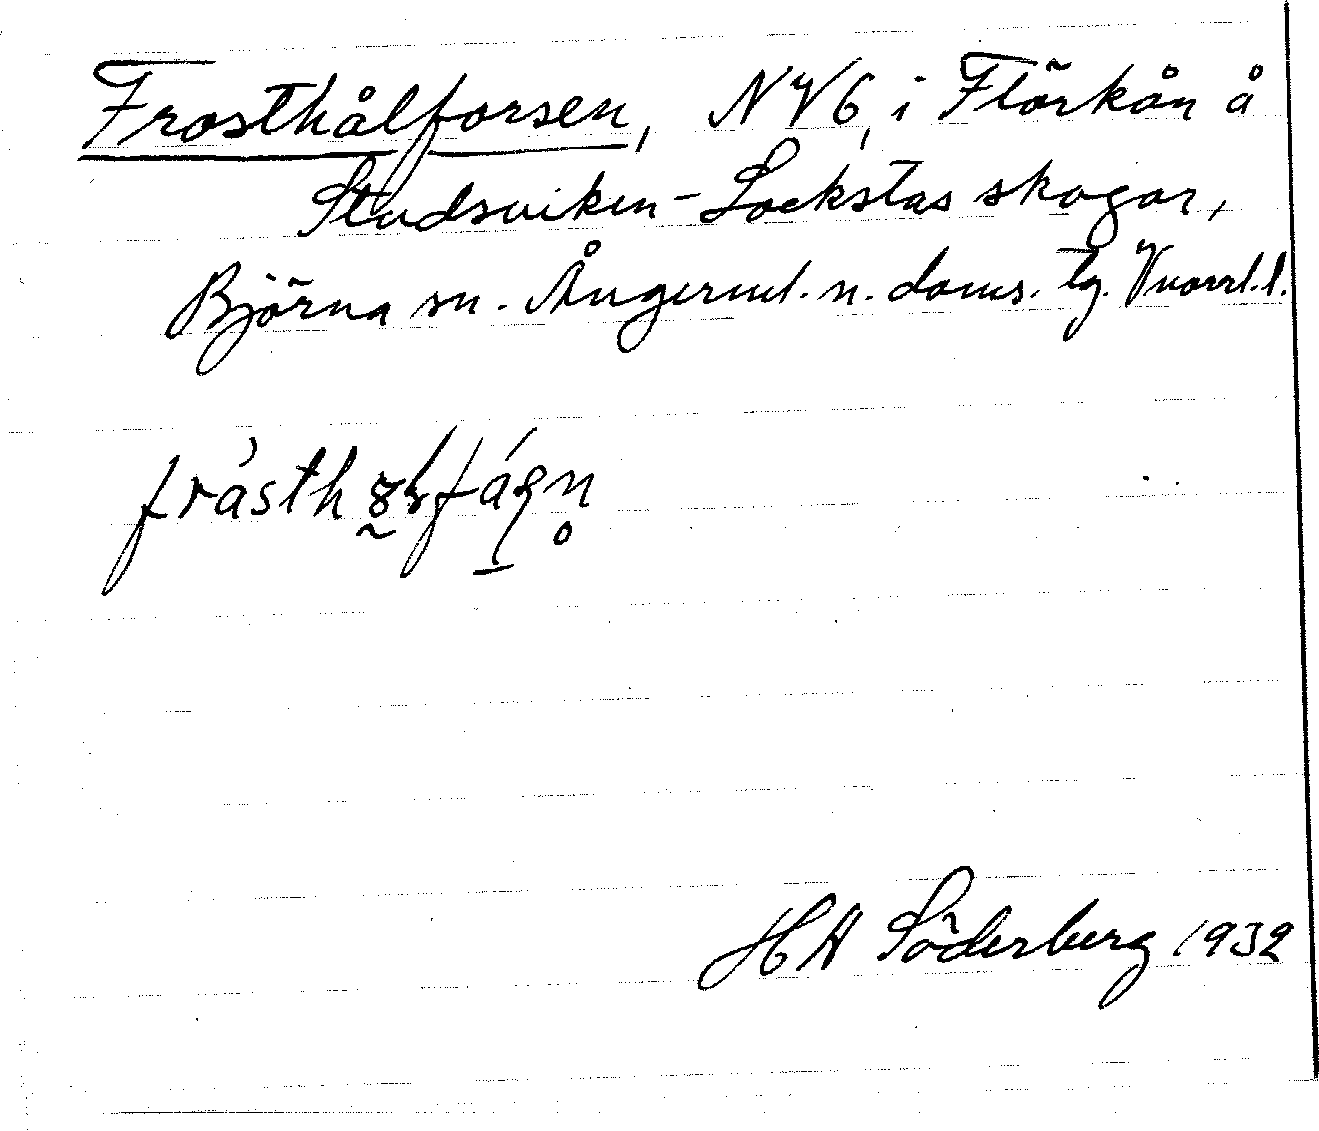 Frosthålforsen, NV6, i Flärkån å
Studsviken-Lockstas skogar,
Björna sn. Ångerml. n. doms. tg. Vnorrl. l.
HA Söderberg 1932